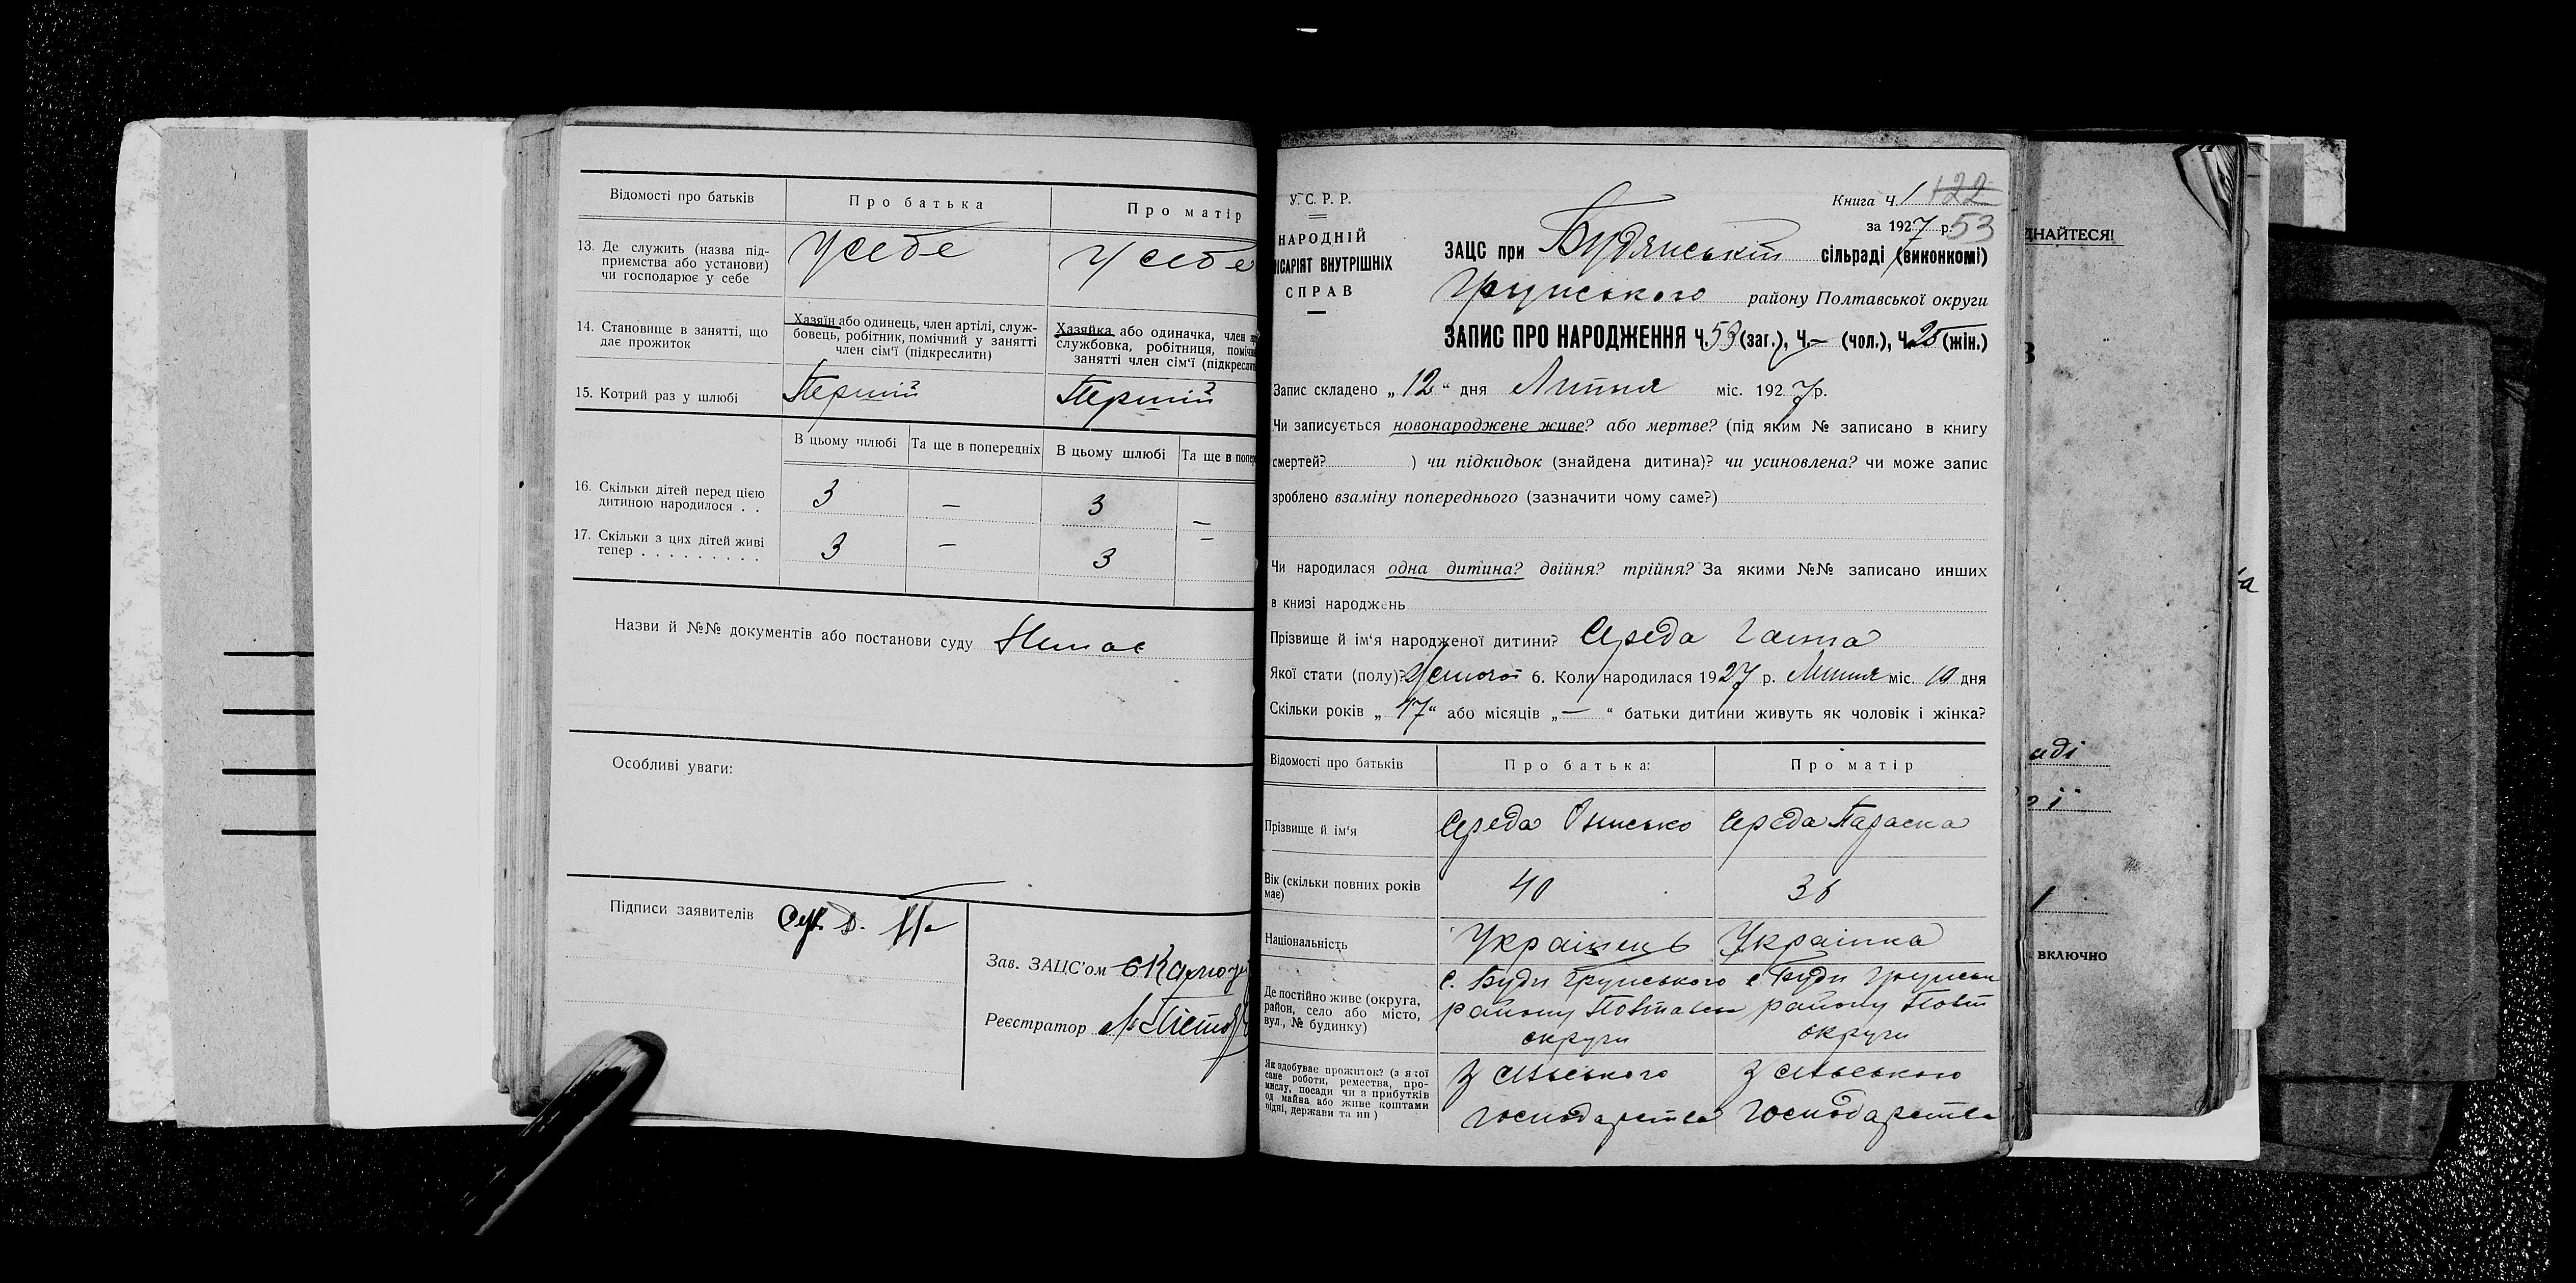 Відомості про батьків
Про батька
Про матір
13. Де служить (назва під-
приємства або установи)
чи господарює у себе
У себе
У себе
14. Становище в занятті, що
дає прожиток
Хазяїн або одинець, член артілі, служ-
бовець, робітник, помічний у занятті
член сім'ї (підкреслити)
Хазяйка або одиначка, член
службовка, робітниця,
занятті член сім'ї
15. Котрий раз у шлюбі
Перший
Перший
В цьому шлюбі
Та ще в попередніх
В цьому шлюбі
Та ще в
16. Скільки дітей перед цією
дитиною народилося . .
3 — 3 —
17. Скільки з цих дітей живі
тепер . . . . . . . . .
3 — 3 —
Назви й №№ документів або постанови суду Немає
Особливі уваги:
Підписи заявителів
Зав. ЗАЦС'ом
Реєстратор
У. С. Р. Р.
НАРОДНІЙ
ІСАРІЯТ ВНУТРІШНІХ
СПРАВ
Книга Ч. 1 122
за 1927 р. 53
ЗАЦС при Будянській сільраді (виконкомі)
Грунського району Полтавської округи
ЗАПИС ПРО НАРОДЖЕННЯ Ч. 53 (заг.), Ч. — (чол.), Ч. 25 (жін.)
Запис складено „ 12 “ дня Липня міс. 1927 р.
Чи записується новонароджене живе? або мертве? (під яким № записано в книгу
смертей? ) чи підкидьок (знайдена дитина)? чи усиновлена? чи може запис
зроблено взаміну попереднього (зазначити чому саме?)
Чи народилася одна дитина? двійня? трійня? За якими №№ записано инших
в книзі народжень
Прізвище й ім'я народженої дитини? Середа Ганна
Якої стати (полу)? Жіночої 6. Коли народилася 1927 р. Липня міс. 10 дня
Скільки років „ 17 “ або місяців „ — “ батьки дитини живуть як чоловік і жінка?
Відомості про батьків
Про батька:
Про матір
Прізвище й ім'я
Середа Онисько
Середа Параска
Вік (скільки повних років
має)
40
36
Національність
Українець
Українка
Де постійно живе (округа,
район, село або місто,
вул., № будинку)
с. Буди Грунського
району Полтавськ
округи
с. Буди Грунськ
району Полт
округи
Як здобуває прожиток? (з якої
саме роботи, ремества, про-
мислу, посади чи з прибутків
од майна або живе коштами
рідні, держави та ин)
З сільського
господарства
З сільського
господарства
ДНАЙТЕСЯ!
В
аді
ої
1
ВКЛЮЧНО